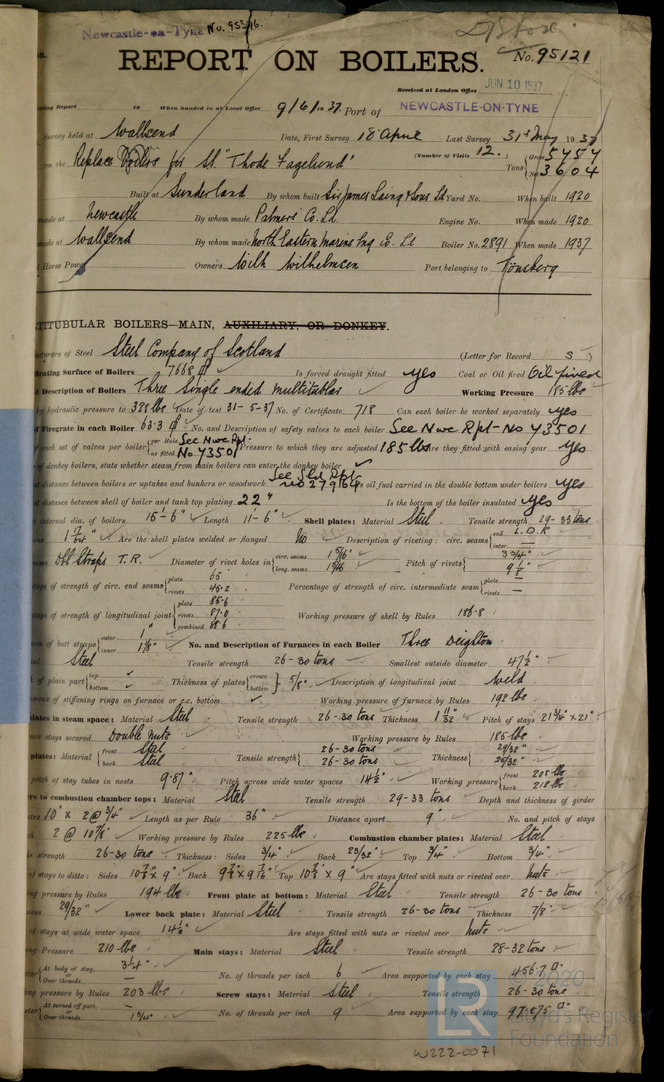 Newcastle-on-Tyne No. 95396.
REPORT ON BOILERS. No. 95121
Received at London Office JUN 10 1937
Report When handed in at Local Office 9/6/1937 Port of NEWCASTLE-ON-TYNE
Survey held at Wallsend Date, First Survey 18 April Last Survey 31st May 1937
on the Replace Boilers for SS "Thode Fagelund" (Number of Visits 12.) Tons Gross 5757 Net 3604
Built at Sunderland By whom built Sir James Laing & Sons Ld Yard No. When built 1920
made at Newcastle By whom made Palmers Co. Ld Engine No. When made 1920
made at Wallsend By whom made North Eastern Marine Eng Co. Ld Boiler No. 2891 When made 1937
Horse Power Owners Wilh Wilhelmsen Port belonging to Tönsberg
TITUBULAR BOILERS—MAIN, AUXILIARY, OR DONKEY.
of Steel Steel Company of Scotland (Letter for Record S)
Heating Surface of Boilers 7668 Is forced draught fitted yes Coal or Oil fired Oil fired
Description of Boilers Three Single ended multitubular Working Pressure 185 lbs
by hydraulic pressure to 328 lbs Date of test 31-5-37 No. of Certificate 718 Can each boiler be worked separately yes
of Firegrate in each Boiler 63.3 No. and Description of safety valves to each boiler See Nwc Rpt-No 73501
of each set of valves per boiler per Rule as fitted See Nwc Rpt No 73501 Pressure to which they are adjusted 185 lbs Are they fitted with easing gear yes
of donkey boilers, state whether steam from main boilers can enter the donkey boiler
distance between boilers or uptakes and bunkers or woodwork See Sld Rpt no 27964 Is oil fuel carried in the double bottom under boilers yes
distance between shell of boiler and tank top plating 22" Is the bottom of the boiler insulated yes
internal dia. of boilers 15'-6" Length 11'-6" Shell plates: Material Steel Tensile strength 29-33 tons
Are the shell plates welded or flanged No Description of riveting: circ. seams end L.D.R inter. —
Dbl Straps T.R. Diameter of rivet holes in circ. seams long. seams Pitch of rivets
of strength of circ. end seams plate 65 rivets 45.2 Percentage of strength of circ. intermediate seam plate — rivets —
of strength of longitudinal joint plate 86.6 rivets 87.0 combined 88.6 Working pressure of shell by Rules 186.8
of butt straps outer 1" inner 1 1/8" No. and Description of Furnaces in each Boiler Three Deighton
Steel Tensile strength 26-30 tons Smallest outside diameter 47 1/2"
of plain part top bottom Thickness of plates crown bottom 5/8" Description of longitudinal joint Weld
of stiffening rings on furnace or c.c. bottom Working pressure of furnace by Rules 192 lbs
plates in steam space: Material Steel Tensile strength 26-30 tons Thickness 1 11/32 Pitch of stays 21 3/16" x 21"
are stays secured Double nuts Working pressure by Rules 185 lbs
plates: Material front Steel back Steel Tensile strength 26-30 tons 26-30 tons Thickness 29/32" 26/32"
pitch of stay tubes in nests 9.87" Pitch across wide water spaces 14 1/2" Working pressure front 208 lbs back 218 lbs
to combustion chamber tops: Material Steel Tensile strength 29-33 tons Depth and thickness of girder
10" x 2 @ 3/4" Length as per Rule 36" Distance apart 9" No. and pitch of stays
2 @ 10 7/8" Working pressure by Rules 225 lbs Combustion chamber plates: Material Steel
strength 26-30 tons Thickness: Sides 3/4" Back 23/32" Top 3/4" Bottom 3/4"
of stays to ditto: Sides 10 7/8 x 9" Back Top x 9" Are stays fitted with nuts or riveted over nuts
pressure by Rules 194 lbs Front plate at bottom: Material Steel Tensile strength 26-30 tons
29/32" Lower back plate: Material Steel Tensile strength 26-30 tons Thickness 7/8"
of stays at wide water space 14 1/2" Are stays fitted with nuts or riveted over nuts
Pressure 210 lbs Main stays: Material Steel Tensile strength 28-32 tons
At body of stay, or Over threads. 3 1/4" No. of threads per inch 6 Area supported by each stay 456.7
pressure by Rules 203 lbs Screw stays: Material Steel Tensile strength 26-30 tons
At turned off part, or Over threads. 1 3/4" No. of threads per inch 9 Area supported by each stay 97.875
LR ©2020
Lloyd's Register
Foundation
W222-0071